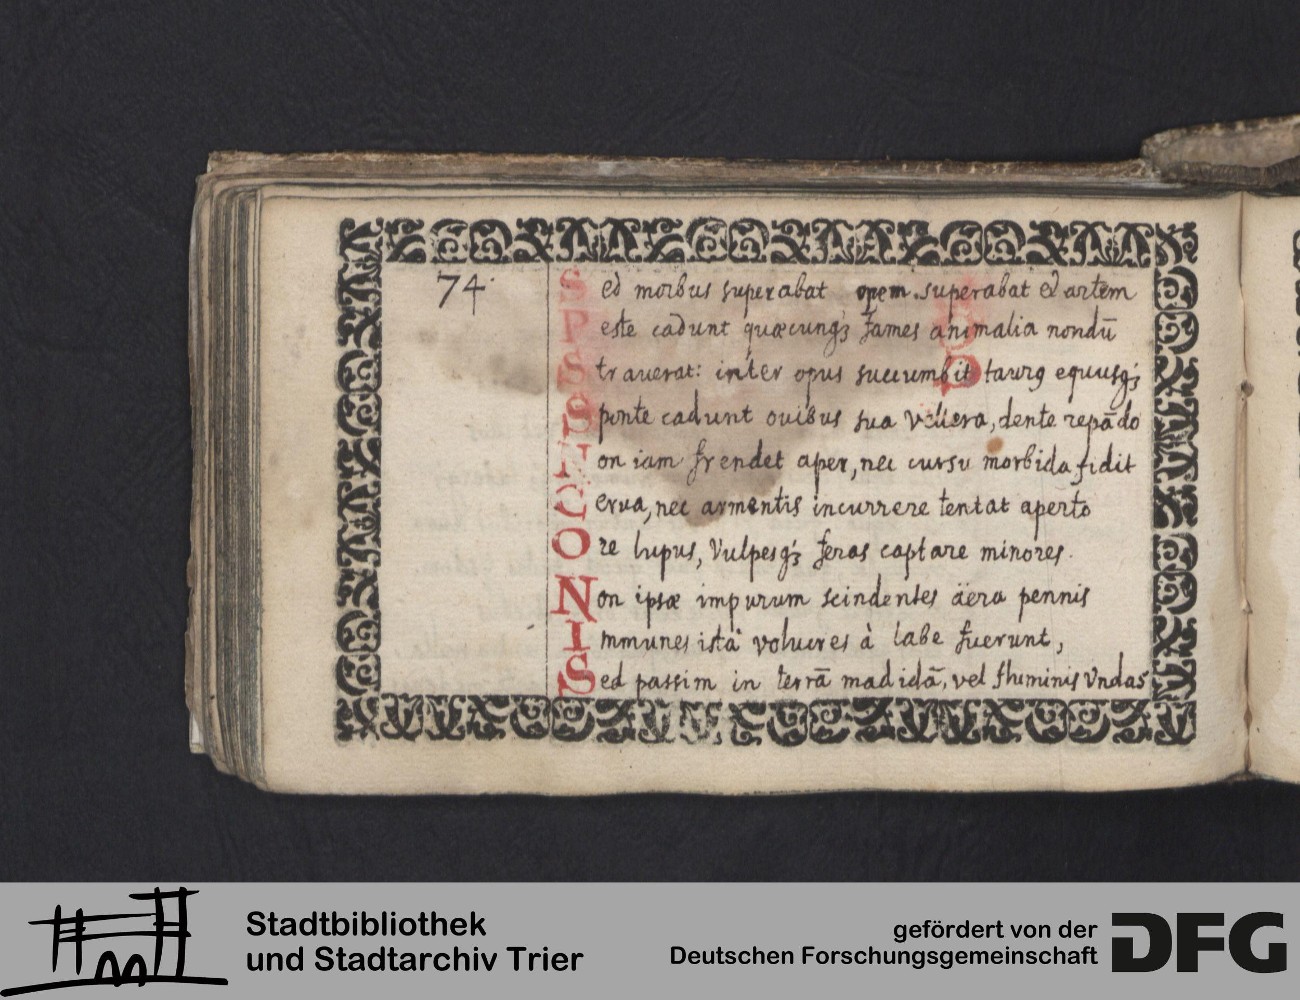 74.
Sed morbus superabat opem. superabat & artem
Peste cadunt quæcungꝫ fames animalia nondū
Strauerat: inter opus succumbit taurꝰ equusqꝫ
Sponte cadunt ouibus sua vellera, dente repādo
Non iam frendet aper, nec cursu morbida fidit
Cerua, nec armentis incurrere tentat aperto
Ore lupus, Vulpesqꝫ feras captare minores.
Non ipsæ impurum scindentes äera pennis
Immunes istâ volucres à labe fuerunt,
Sed passim in terrā madidā, vel fluminis Vndas
Stadtbibliothek
und Stadtarchiv Trier
gefördert von der
Deutschen Forschungsgemeinschaft
DFG